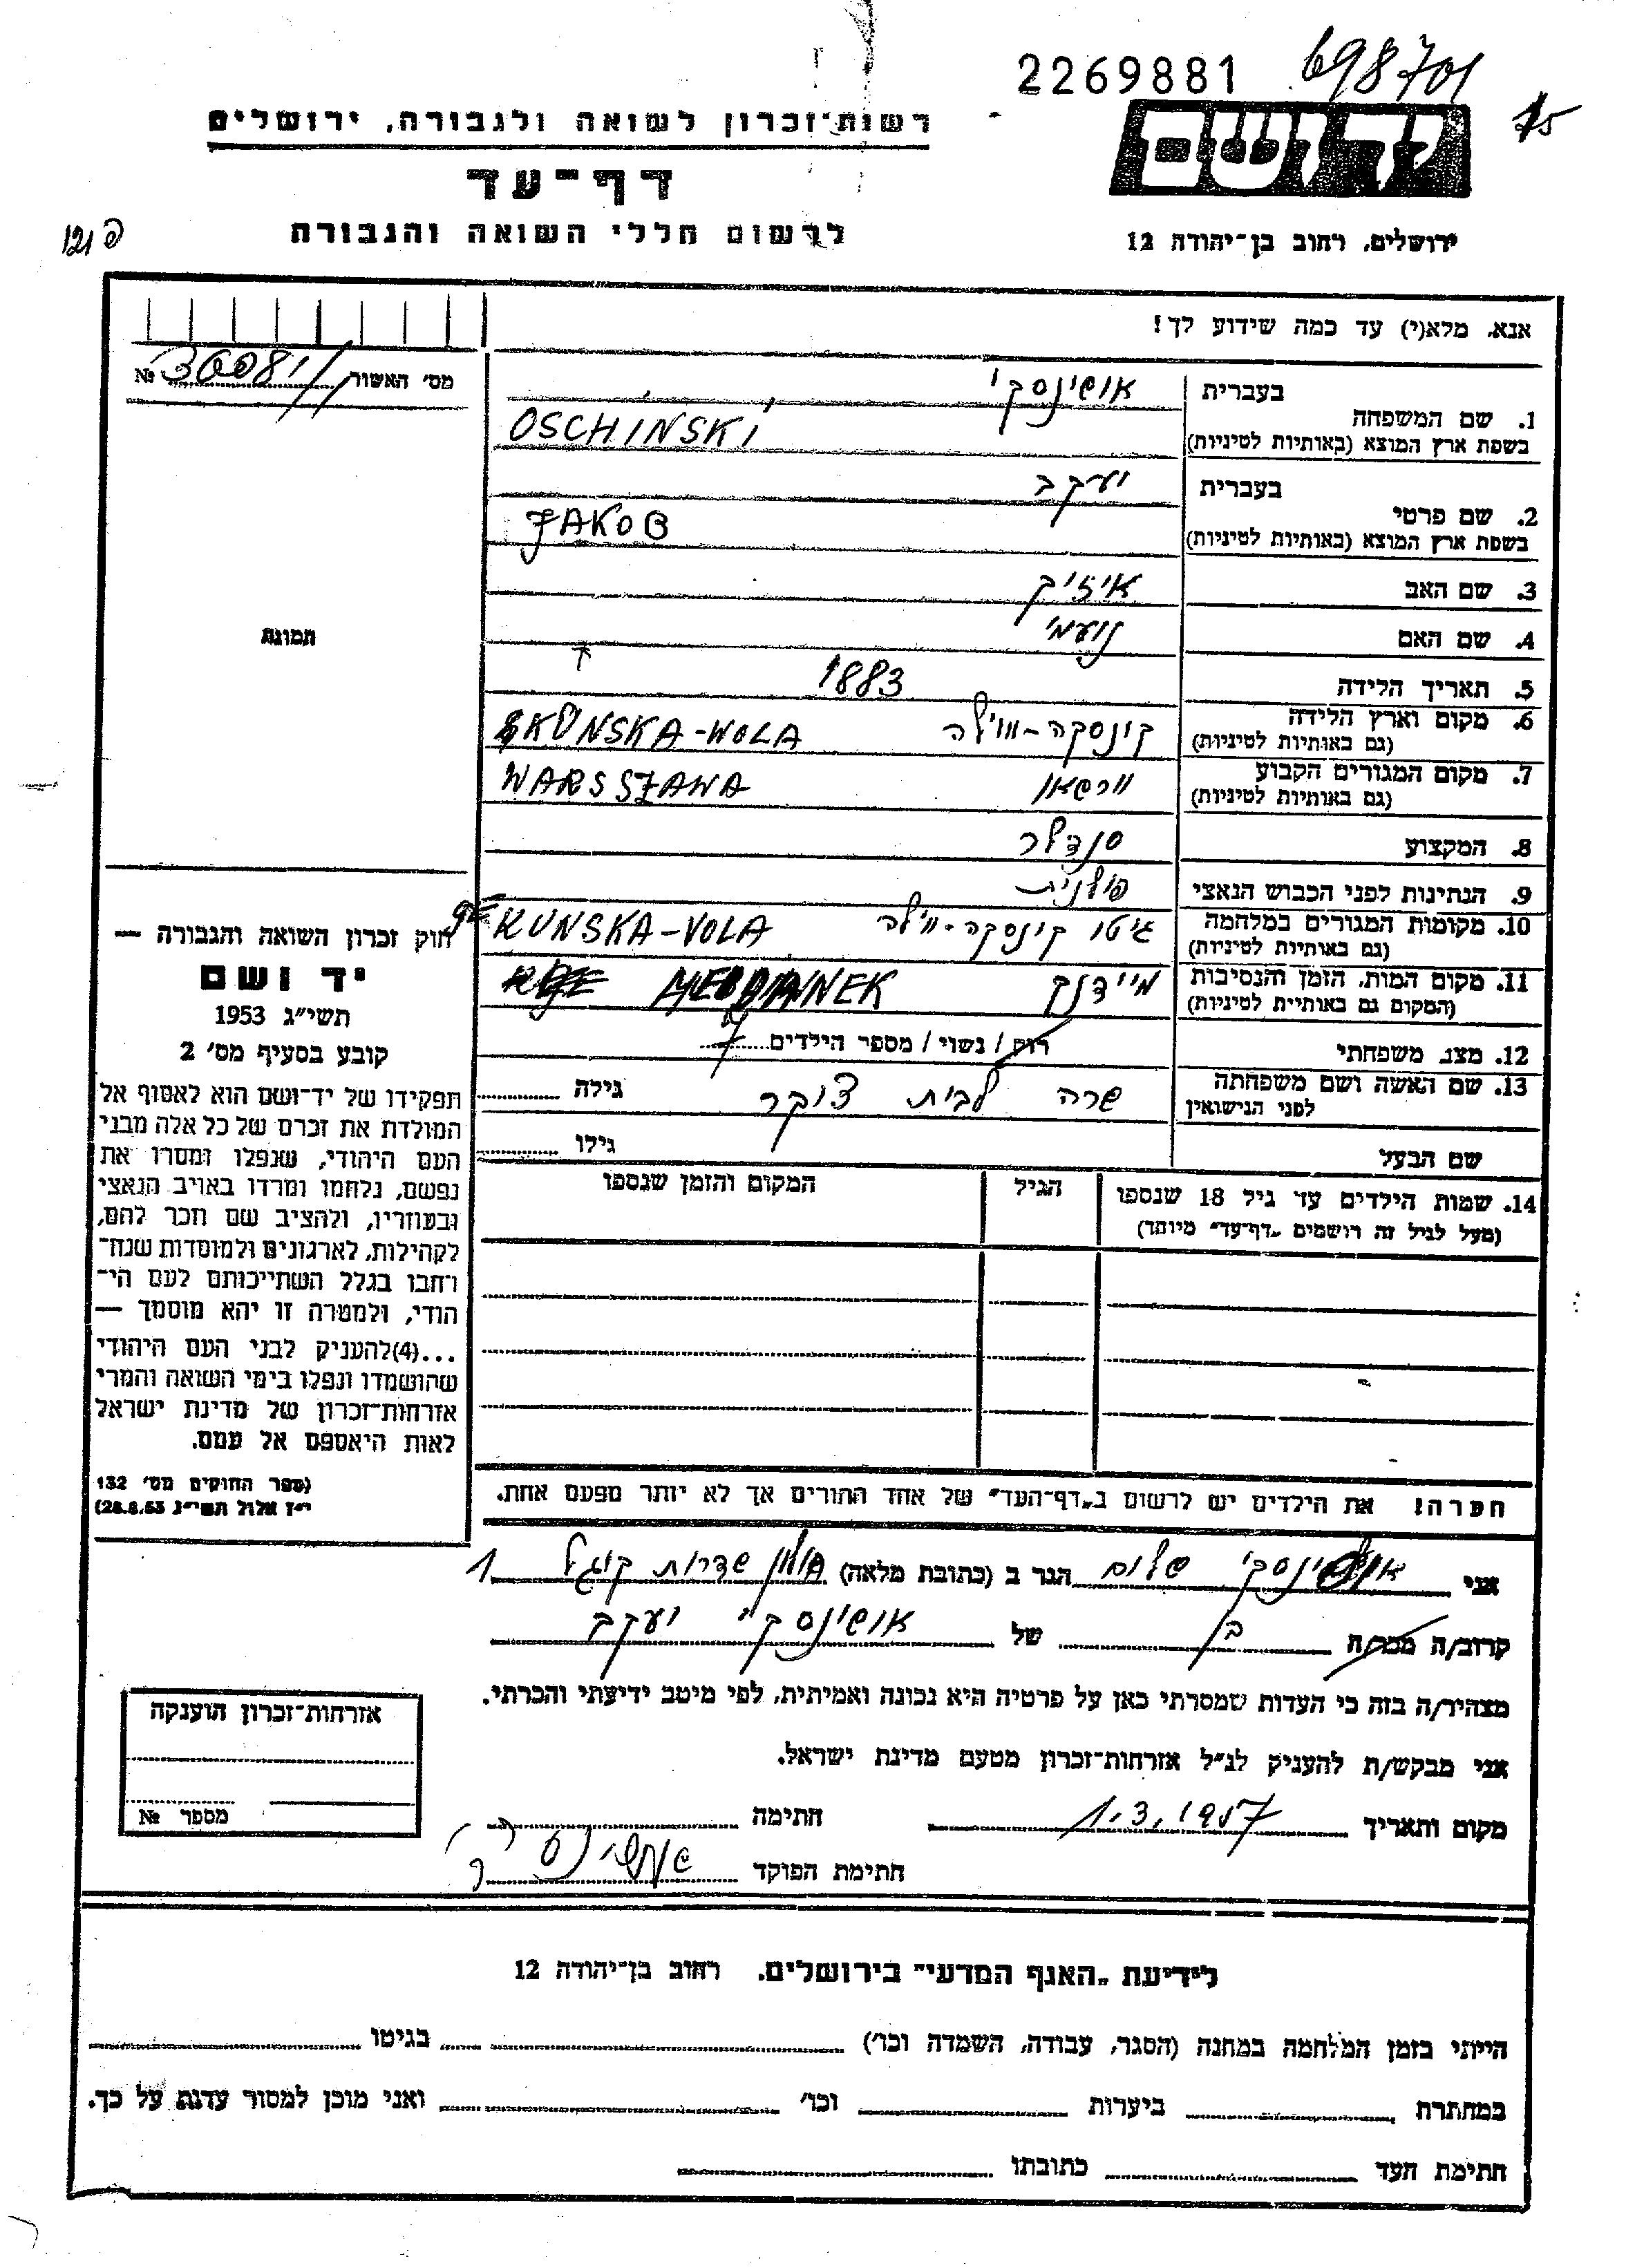 2269881 698701
15
רשות־זכרון לשואה ולגבורה, ירושלים
יד ושם
דף־עד
לרשום חללי השואה והגבורה
ירושלים, רחוב בן־יהודה 12
אנא, מלא(י) עד כמה שידוע לך!
מס׳ האשור № 30081
בעברית אושינסקי
1. שם המשפחה
בשפת ארץ המוצא (באותיות לטיניות) OSCHINSKI
בעברית יעקב
2. שם פרטי
בשפת ארץ המוצא (באותיות לטיניות) JAKOB
3. שם האב איזיק
4. שם האם נועמי
תמונה
5. תאריך הלידה 1883
6. מקום וארץ הלידה קונסקה-ווילה KUNSKA-WOLA
(גם באותיות לטיניות)
7. מקום המגורים הקבוע וורשאו WARSSZAWA
(גם באותיות לטיניות)
8. המקצוע סנדלר
9. הנתינות לפני הכבוש הנאצי פולנית
10. מקומות המגורים במלחמה גיטו קינסקה-ווילה KUNSKA-VOLA
(גם באותיות לטיניות)
11. מקום המות, הזמן והנסיבות מיידנק
(המקום גם באותיית לטיניות)
12. מצב משפחתי רוק / נשוי / מספר הילדים 7
13. שם האשה ושם משפחתה שרה לבית צוקר גילה
לפני הנישואין
שם הבעל גילו
14. שמות הילדים עד גיל 18 שנספו הגיל המקום והזמן שנספו
(מעל לגיל זה רושמים "דף־עד" מיוחד)
חוק זכרון השואה והגבורה —
יד ושם
תשי״ג 1953
קובע בסעיף מס׳ 2
תפקידו של יד־ושם הוא לאסוף אל
המולדת את זכרם של כל אלה מבני
העם היהודי, שנפלו ומסרו את
נפשם, נלחמו ומרדו באויב הנאצי
ובעוזריו, ולהציב שם וזכר להם,
לקהילות, לארגונים ולמוסדות שנח־
רחבו בגלל השתייכותם לעם הי־
הודי, ולמטרה זו יהא מוסמך —
...(4)להעניק לבני העם היהודי
שהושמדו ונפלו בימי השואה והמרי
אזרחות־זכרון של מדינת ישראל
לאות היאספם אל עמם.
(ספר החוקים מס׳ 132
י״ז אלול תשי״ג 28.8.53)
הערה! את הילדים יש לרשום ב"דף־העד" של אחד ההורים אך לא יותר מפעם אחת.
אני אושינסקי שלום הגר ב (כתובת מלאה) חולון שדרות קוגל 1
קרוב/ה מכר/ה בן של אושינסקי יעקב
מצהיר/ה בזה כי העדות שמסרתי כאן על פרטיה היא נכונה ואמיתית, לפי מיטב ידיעתי והכרתי.
אני מבקש/ת להעניק לנ״ל אזרחות־זכרון מטעם מדינת ישראל.
מקום ותאריך 1.3.1957 חתימה
חתימת הפוקד
אזרחות־זכרון הוענקה
מספר №
לידיעת "האגף המדעי" בירושלים, רחוב בן־יהודה 12
הייתי בזמן המלחמה במחנה (הסגר, עבודה, השמדה וכו׳) בגיטו
במחתרת ביערות וכו׳ ואני מוכן למסור עדות על כך.
חתימת העד כתובתו